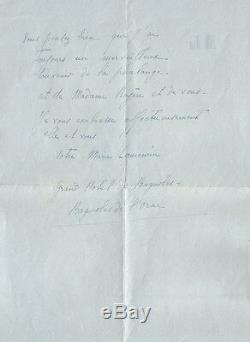 Vous pensez bien que j'ai
toujours un merveilleux
souvenir de la
et de Madame et de vous.
Je vous embrasse affectueusement
elle et vous
Votre Marie Laurencin
Grand Hotel Bagnoles
Bagnoles de l'Orne